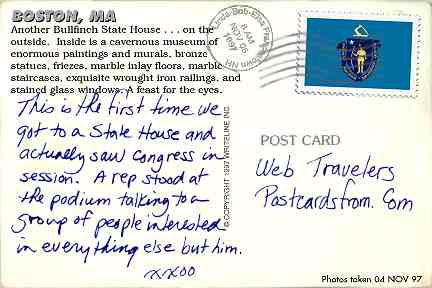 BOSTON, MA
Another Bullfinch State House . . . on the
outside. Inside is a cavernous museum of
enormous paintings and murals, bronze
statues, friezes, marble inlay floors, marble
staircases, exquisite wrought iron railings, and
stained glass windows. A feast for the eyes.
This is the first time we
got to a State House and
actually saw Congress in
session. A rep stood at
the podium talking to a
group of people interested
in everything else but him.
xxoo
© COPYRIGHT 1997 WRITELINE INC.
8 AM
NOV 05
1997
POST CARD
Web Travelers
Postcardsfrom.Com
Photos taken 04 NOV 97